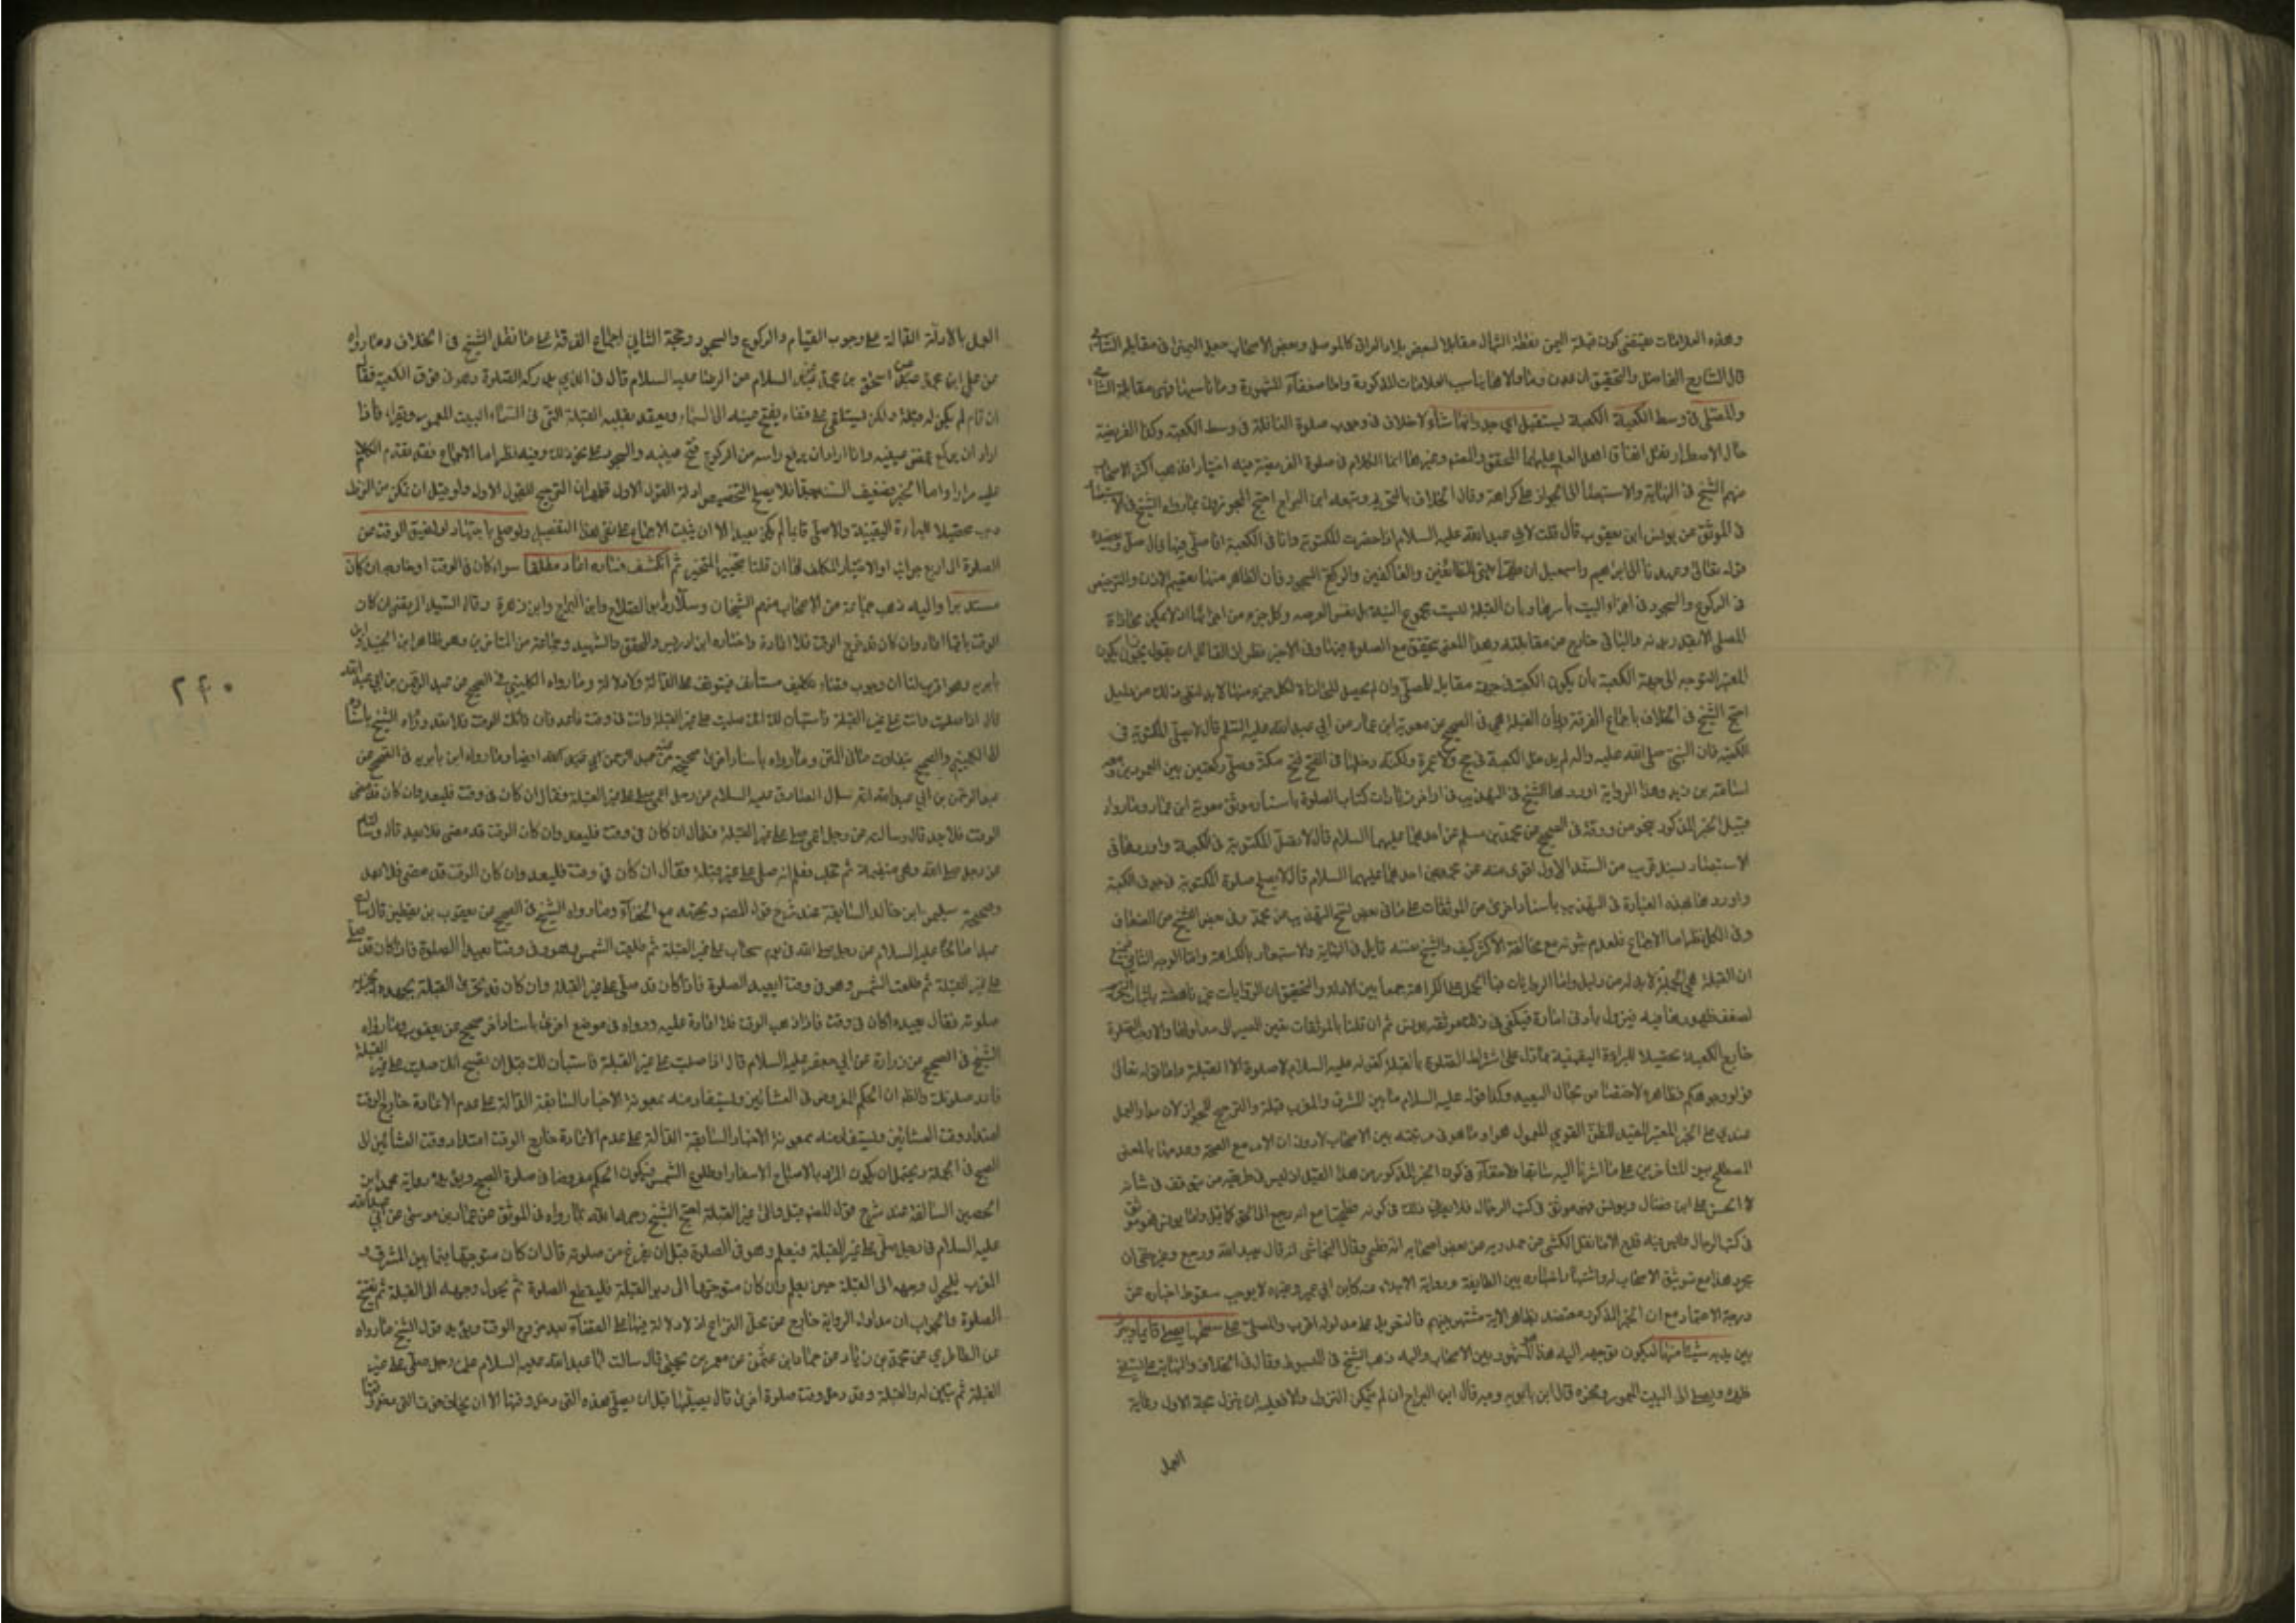 وهذه العلامات يقتضي كون قبلة اليمن نقطة الشمال مقابلا لبعض بلاد العراق كالموصل وبعض الاصحاب جعل اليمن في مقابلة الشام
قال الشارح الفاضل والتحقيق ان عدن وما والاها يناسب العلامات المذكورة واما صنعاء المشهورة وما ناسبها فهي مقابلة الشام
والمصلي في وسط الكعبة يستقبل اي جدرانها شاء لا خلاف في وجوب صلوة النافلة في وسط الكعبة وكذا الفريضة
حال الاضطرار نقل اتفاق اهل العلم عليهما المحقق والمصنف وغيرهما انما الكلام في صلوة الفريضة فيه اختيارا فذهب اكثر الاصحاب
منهم الشيخ في النهاية والاستبصار الى الجواز على كراهة وقال في الخلاف بالتحريم وتبعه ابن البراج احتج المجوزون بما رواه الشيخ في الاستبصار
في الموثق عن يونس ابن يعقوب قال قلت لابي عبد الله عليه السلام اذا حضرت المكتوبة وانا في الكعبة افاصلي فيها قال صل ويعضده
قوله تعالى وعهدنا الى ابراهيم واسمعيل ان طهرا بيتي للطائفين والعاكفين والركع السجود فان الظاهر منها تعميم الاذن والترخيص
في الركوع والسجود في اجزاء البيت باسرها وبان القبلة ليست مجموع البنية بل نفس العرصه وكل جزء من اجزائها اذ لا يمكن محاذاة
المصلي الا بقدر بدنه والباقي خارج عن مقابلته وهذا المعنى يتحقق مع الصلوة فيها وفي الاخير نظر لان القائل ان يقول يجوز ان يكون
المعتبر التوجه الى جهة الكعبة بان يكون الكعبة في جهة مقابل المصلي وان لم يحصل المحاذاة لكل جزء منها لا بد لنفي ذلك من دليل
احتج الشيخ في الخلاف باجماع الفرقة وبان القبلة هي في الصحيح عن معوية ابن عمار عن ابي عبد الله عليه السلم قال لا تصلي المكتوبة في
الكعبة فان النبي صلى الله عليه واله لم يدخل الكعبة في حج ولا عمرة ولكنه دخلها في الفتح فتح مكة وصلى ركعتين بين العمودين ومعه
اسامة بن زيد وهذا الرواية اوردها الشيخ في التهذيب في اواخر زيارات كتاب الصلوة باسناد موثق معوية ابن عمار وما رواه
قبيل الخبر المذكور بنحو من ورقة في الصحيح عن محمد بن مسلم عن احدهما عليهما السلام قال لا تصل المكتوبة في الكعبة واوردها في
الاستبصار بسند قريب من السند الاول اقوى منه عن محمد عن احدهما عليهما السلام قال لا يصلح صلوة المكتوبة في جوف الكعبة
واوردها بهذه العبارة في التهذيب باسناد اخرى من الموثقات على ما في بعض نسخ التهذيب عن محمد وفي بعض النسخ من الضعاف
وفي الكل نظر اما الاجماع فلعدم ثبوته مع مخالفة الاكثر كيف والشيخ نفسه قايل في النهاية والاستبصار بالكراهة واما الوجه الثاني فلمنع
ان القبلة هي الجملة لا بد له من دليل واما الروايات فبالحمل على الكراهة جمعا بين الادلة والتحقيق ان الروايات غير ناهضة باثبات التحريم
لضعف ظهورها فيه فيزول بادنى امارة فيكفي في ذلك موثقة يونس ثم ان قلنا بالموثقات تعين المسير الى مدلولها والا وجب الصلوة
خارج الكعبة تحصيلا للبراءة اليقينية بما دل على اشتراط الصلوة بالقبلة كقوله عليه السلام لا صلوة الا الى القبلة واما قوله تعالى
فولوا وجوهكم فظاهره الاختصاص بحال البعيد وكذا قوله عليه السلام ما بين المشرق والمغرب قبلة والترجيح للجواز لان مدار العمل
عندي على الخبر المعتبر المفيد للظن القوي المعمول به او ما هو في مرتبته بين الاصحاب لا دوران الامر مع الصحة وعدمها بالمعنى
المصطلح بين المتاخرين على ما اشرنا اليه سابقا فلا خفاء في كون الخبر المذكور من هذا القبيل اذ ليس في طريقه من يتوقف في شانه
الا الحسن بن علي ابن فضال ويونس وهو موثق في كتب الرجال فلا ينافي ذلك في كونه فطحيا مع انه رجع الى الحق كما قيل واما يونس فهو موثق
في كتب الرجال وليس فيه قدح الا ما نقل الكشي عن حمدويه عن بعض اصحابه انه فطحي وقال النجاشي انه قال بعبد الله ورجع وغير خفي ان
مجرد هذا مع توثيق الاصحاب لروايتها واعتباره بين الطايفة ورواية الاجلاء عنه كابن ابي عمير وغيره لا يوجب سقوط اخباره عن
درجة الاعتبار مع ان الخبر المذكور معتضد بظاهر الاية مشتهر بينهم فالتعويل على مدلوله اقرب والمصلي على سطحها يصلي قايما ويبرز
بين يديه شيئا منها ليكون توجهه اليه هذا هو المشهور بين الاصحاب واليه ذهب الشيخ في المبسوط وقال في الخلاف والنهاية يستلقي على
ظهره ويصلي الى البيت المعمور ونحوه قال ابن بابويه وقال ابن البراج ان لم يتمكن من النزول والا فعليه ان ينزل حجة الاول رعاية
العمل
العمل بالادلة الدالة على وجوب القيام والركوع والسجود وحجة الثاني اجماع الفرقة على ما نقل الشيخ في الخلاف وما رواه
عن علي ابن محمد عن اسحق بن محمد عن عبد السلام عن الرضا عليه السلام قال في الذي يدركه الصلوة وهو فوق الكعبة فقال
ان قام لم يكن له قبلة ولكن يستلقي على قفاه يفتح عينيه الى السماء ويعقد بقلبه القبلة التي في السماء البيت المعمور ويقرأ فاذا
اراد ان يركع غمض عينيه واذا اراد ان يرفع راسه من الركوع فتح عينيه والسجود على نحو ذلك وفيه نظر اما الاجماع فقد تقدم الكلام
عليه مرارا واما الخبر فضعيف السند جدا فلا يصلح لتخصيص ادلة القول الاول فظهر ان الترجيح للقول الاول ولو قيل ان تمكن من النزول
وجب تحصيلا للبراءة اليقينية والا صلى قايما لم يكن بعيدا الا ان يثبت الاجماع على نفي هذا التفصيل ولو صلى باجتهاد او لضيق الوقت عن
الصلوة الى اربع جهات او لاختيار المكلف لها ان قلنا بتخيير المتحير ثم انكشف فساده اعاد مطلقا سواء كان في الوقت او خارجه ان كان
مستدبرا واليه ذهب جماعة من الاصحاب منهم الشيخان وسلار وابو الصلاح وابن البراج وابن زهرة وقال السيد المرتضى ان كان
الوقت باقيا اعاد وان كان قد خرج الوقت فلا اعادة واختاره ابن ادريس والمحقق والشهيد وجماعة من المتاخرين وهو ظاهر ابن الجنيد وابن
بابويه وهو اقرب لنا ان وجوب قضاء تكليف مستأنف فيتوقف على الدلالة ولا دلالة وما رواه الكليني في الصحيح عن عبد الرحمن بن ابي عبد الله
قال اذا صليت وانت على غير القبلة واستبان لك انك صليت على غير القبلة وانت في وقت فاعد وان فاتك الوقت فلا تعد ورواه الشيخ باسناده
الى الكليني والصحيح بتفاوت ما في المتن وما رواه باسناد اخرى صحيحة عن عبد الرحمن ابي عبد الله ايضا وما رواه ابن بابويه في الصحيح عن
عبد الرحمن بن ابي عبد الله انه سال الصادق عليه السلام عن رجل اعمى صلى على غير القبلة فقال ان كان في وقت فليعد وان كان قد مضى
الوقت فلا يعد قال وسالته عن رجل اعمى صلى على غير القبلة فقال ان كان في وقت فليعد وان كان الوقت قد مضى فلا يعد قال وسالته
عن رجل صلى وهي متغيمة ثم تجلت فعلم انه صلى على غير قبلة فقال ان كان في وقت فليعد وان كان الوقت قد مضى فلا يعد
وصحيحة سليمن ابن خالد السابقة عند شرح قول المصنف ويجتهد مع الخفاء وما رواه الشيخ في الصحيح عن يعقوب بن يقطين قال سالت
عبدا صالحا عليه السلام عن رجل صلى في يوم سحاب على غير القبلة ثم طلعت الشمس وهو في وقت ايعيد الصلوة فاذا كان قد صلى
على غير القبلة ثم طلعت الشمس وهو في وقت ايعيد الصلوة فاذا كان قد صلى على غير القبلة وان كان قد تحرى القبلة بجهده اتجزيه
صلوته فقال يعيد ما كان في وقت فاذا ذهب الوقت فلا اعادة عليه ورواه في موضع اخر باسناد اخر صحيح عن يعقوب وما رواه
الشيخ في الصحيح عن زرارة عن ابي جعفر عليه السلام قال اذا صليت على غير القبلة فاستبان لك قبل ان تصبح انك صليت على غير القبلة
فاعد صلوتك والظ ان الحكم المفروض في العشائين ويستفاد منه بمعونة الاخبار السابقة الدالة على عدم الاعادة خارج الوقت
امتداد وقت العشائين ويستفاد منه بمعونة الاخبار السابقة الدالة على عدم الاعادة خارج الوقت امتداد وقت العشائين الى
الصبح في الجملة ويحتمل ان يكون المراد بالاصباح الاسفار او طلوع الشمس فيكون الحكم مفروضا في صلوة الصبح ويؤيده رواية محمد ابن
الحصين السالفة عند شرح قول المصنف قبل والى غير القبلة احتج الشيخ رحمه الله بما رواه في الموثق عن عمار بن موسى عن ابي عبد الله
عليه السلام في رجل صلى على غير القبلة فيعلم وهو في الصلوة قبل ان يفرغ من صلوته قال ان كان متوجها فيما بين المشرق و
المغرب فليحول وجهه الى القبلة حين يعلم وان كان متوجها الى دبر القبلة فليقطع الصلوة ثم يحول وجهه الى القبلة ثم يفتح
الصلوة والجواب ان مدلول الرواية خارج عن محل النزاع اذ لا دلالة فيها على القضاء بعد خروج الوقت ويؤيد قول الشيخ ما رواه
عن الطاطري عن محمد بن زياد عن حماد ابن عثمن عن معمر بن يحيى قال سالت ابا عبد الله عليه السلام عن رجل صلى على غير
القبلة ثم تبين له القبلة وقد دخل وقت صلوة اخرى قال يصليها قبل ان يصلي هذه التي دخل وقتها الا ان يخاف فوت التي دخل وقتها
٢٤٠